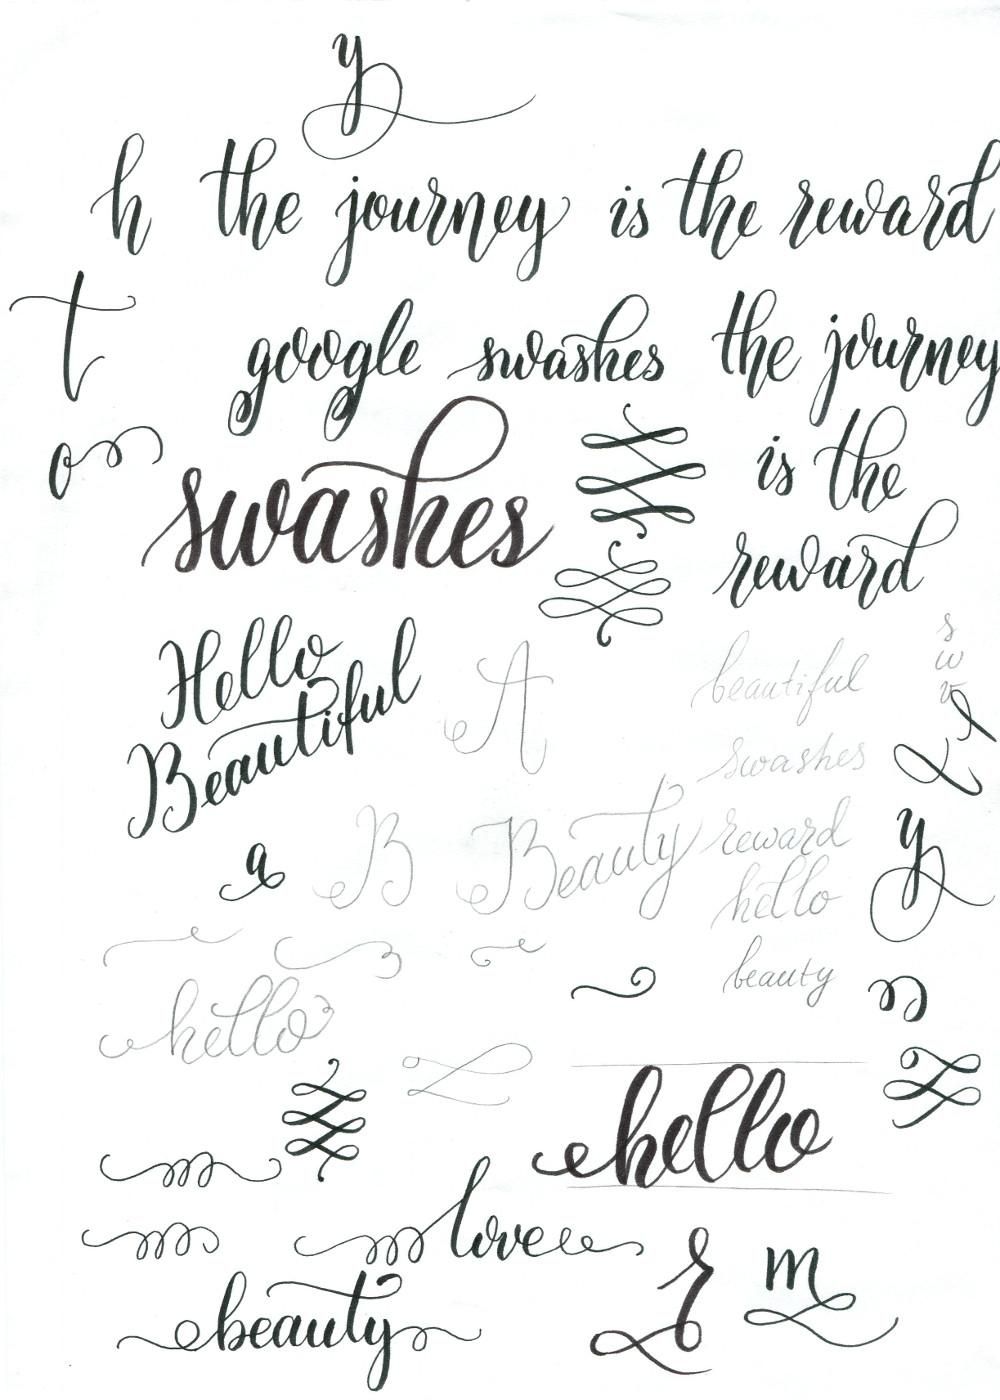 y
h the journey is the reward
t
google swashes the journey
swashes is the
reward
s
w
Hello
Beautiful
A
beautiful
swashes
y
a B Beauty reward
hello
beauty
hello
hello
love
beauty
r m